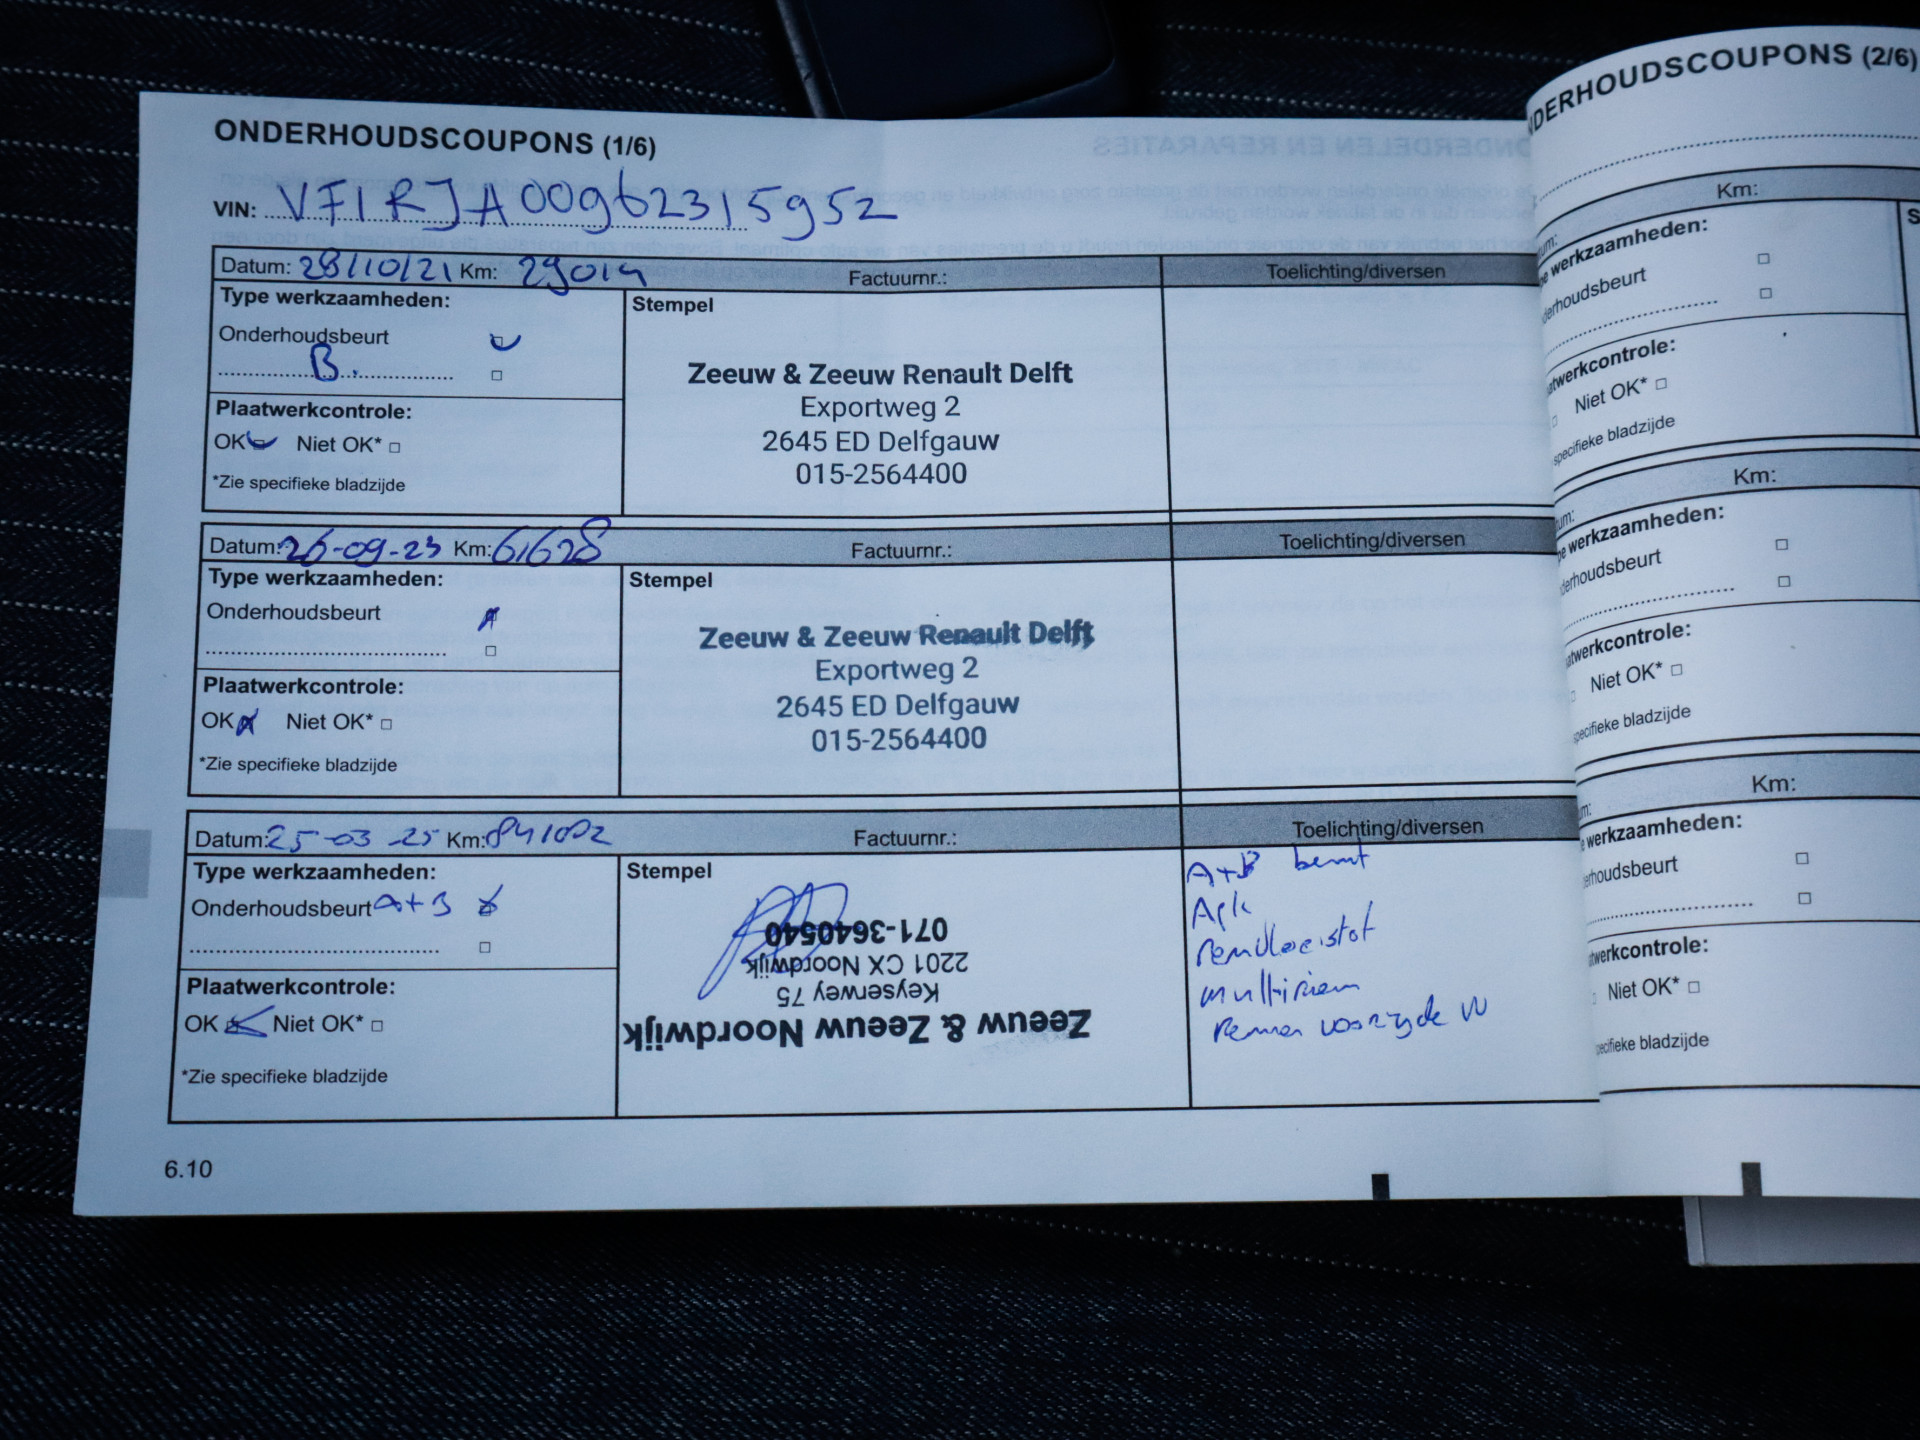 ONDERHOUDSCOUPONS (1/6)
VIN: VF1RJA00962315952
Datum: 28/10/21 Km: 29014 Factuurnr.: Toelichting/diversen
Type werkzaamheden: Stempel
Onderhoudsbeurt
B.
Plaatwerkcontrole:
OK Niet OK*
*Zie specifieke bladzijde
Zeeuw & Zeeuw Renault Delft
Exportweg 2
2645 ED Delfgauw
015-2564400
Datum: 26-09-23 Km: 61628 Factuurnr.: Toelichting/diversen
Type werkzaamheden: Stempel
Onderhoudsbeurt
Plaatwerkcontrole:
OK Niet OK*
*Zie specifieke bladzijde
Zeeuw & Zeeuw Renault Delft
Exportweg 2
2645 ED Delfgauw
015-2564400
Datum: 25-03-25 Km: Factuurnr.: Toelichting/diversen
Type werkzaamheden: Stempel
Onderhoudsbeurt A+B
Plaatwerkcontrole:
OK Niet OK*
*Zie specifieke bladzijde
Zeeuw & Zeeuw Noordwijk
Keyserwey 75
2201 CX Noordwijk
071-3640540
A+B beurt
Apk
remvloeistof
multiriem
remmen voorzijde
6.10
NDERHOUDSCOUPONS (2/6)
Km:
werkzaamheden:
Niet OK*
specifieke bladzijde
Km:
werkzaamheden:
Niet OK*
Km:
werkzaamheden:
Niet OK*